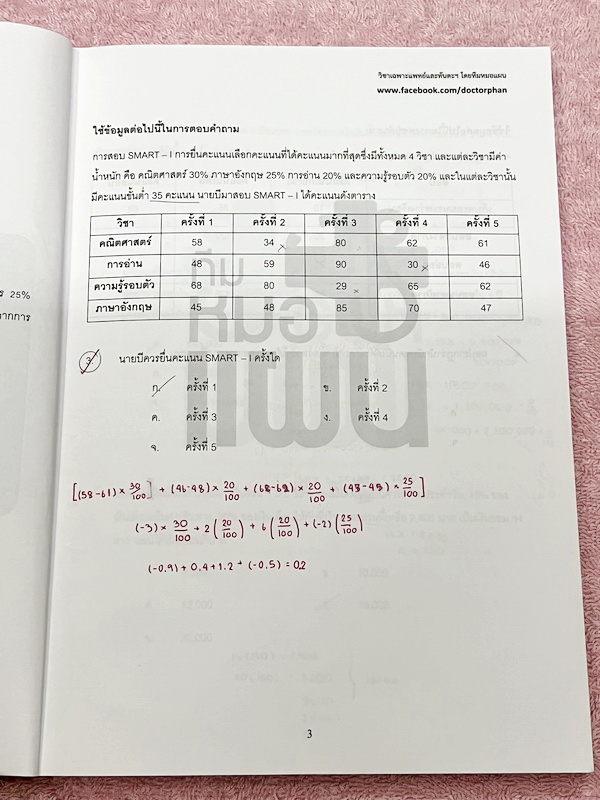 วิชาเฉพาะแพทย์และทันตะฯ โดยทีมหมอแผน
www.facebook.com/doctorphan
ใช้ข้อมูลต่อไปนี้ในการตอบคำถาม
การสอบ SMART – I การยื่นคะแนนเลือกคะแนนที่ได้คะแนนมากที่สุดซึ่งมีทั้งหมด 4 วิชา และแต่ละวิชามีค่า
น้ำหนัก คือ คณิตศาสตร์ 30% ภาษาอังกฤษ 25% การอ่าน 20% และความรู้รอบตัว 20% และในแต่ละวิชานั้น
มีคะแนนขั้นต่ำ 35 คะแนน นายบีมาสอบ SMART – I ได้คะแนนดังตาราง
วิชา ครั้งที่ 1 ครั้งที่ 2 ครั้งที่ 3 ครั้งที่ 4 ครั้งที่ 5
คณิตศาสตร์ 58 34 80 62 61
การอ่าน 48 59 90 30 46
ความรู้รอบตัว 68 80 29 65 62
ภาษาอังกฤษ 45 48 85 70 47
ทีม
หมอ
แผน
25%
จากการ
3. นายบีควรยื่นคะแนน SMART – I ครั้งใด
ก. ครั้งที่ 1 ข. ครั้งที่ 2
ค. ครั้งที่ 3 ง. ครั้งที่ 4
จ. ครั้งที่ 5
[(58-61) × 30/100] + (46-48) × 20/100 + (68-62) × 20/100 + (45-45) × 25/100]
(-3) × 30/100 + 2 (20/100) + 6 (20/100) + (-2) (25/100)
(-0.9) + 0.4 + 1.2 + (-0.5) = 0.2
3